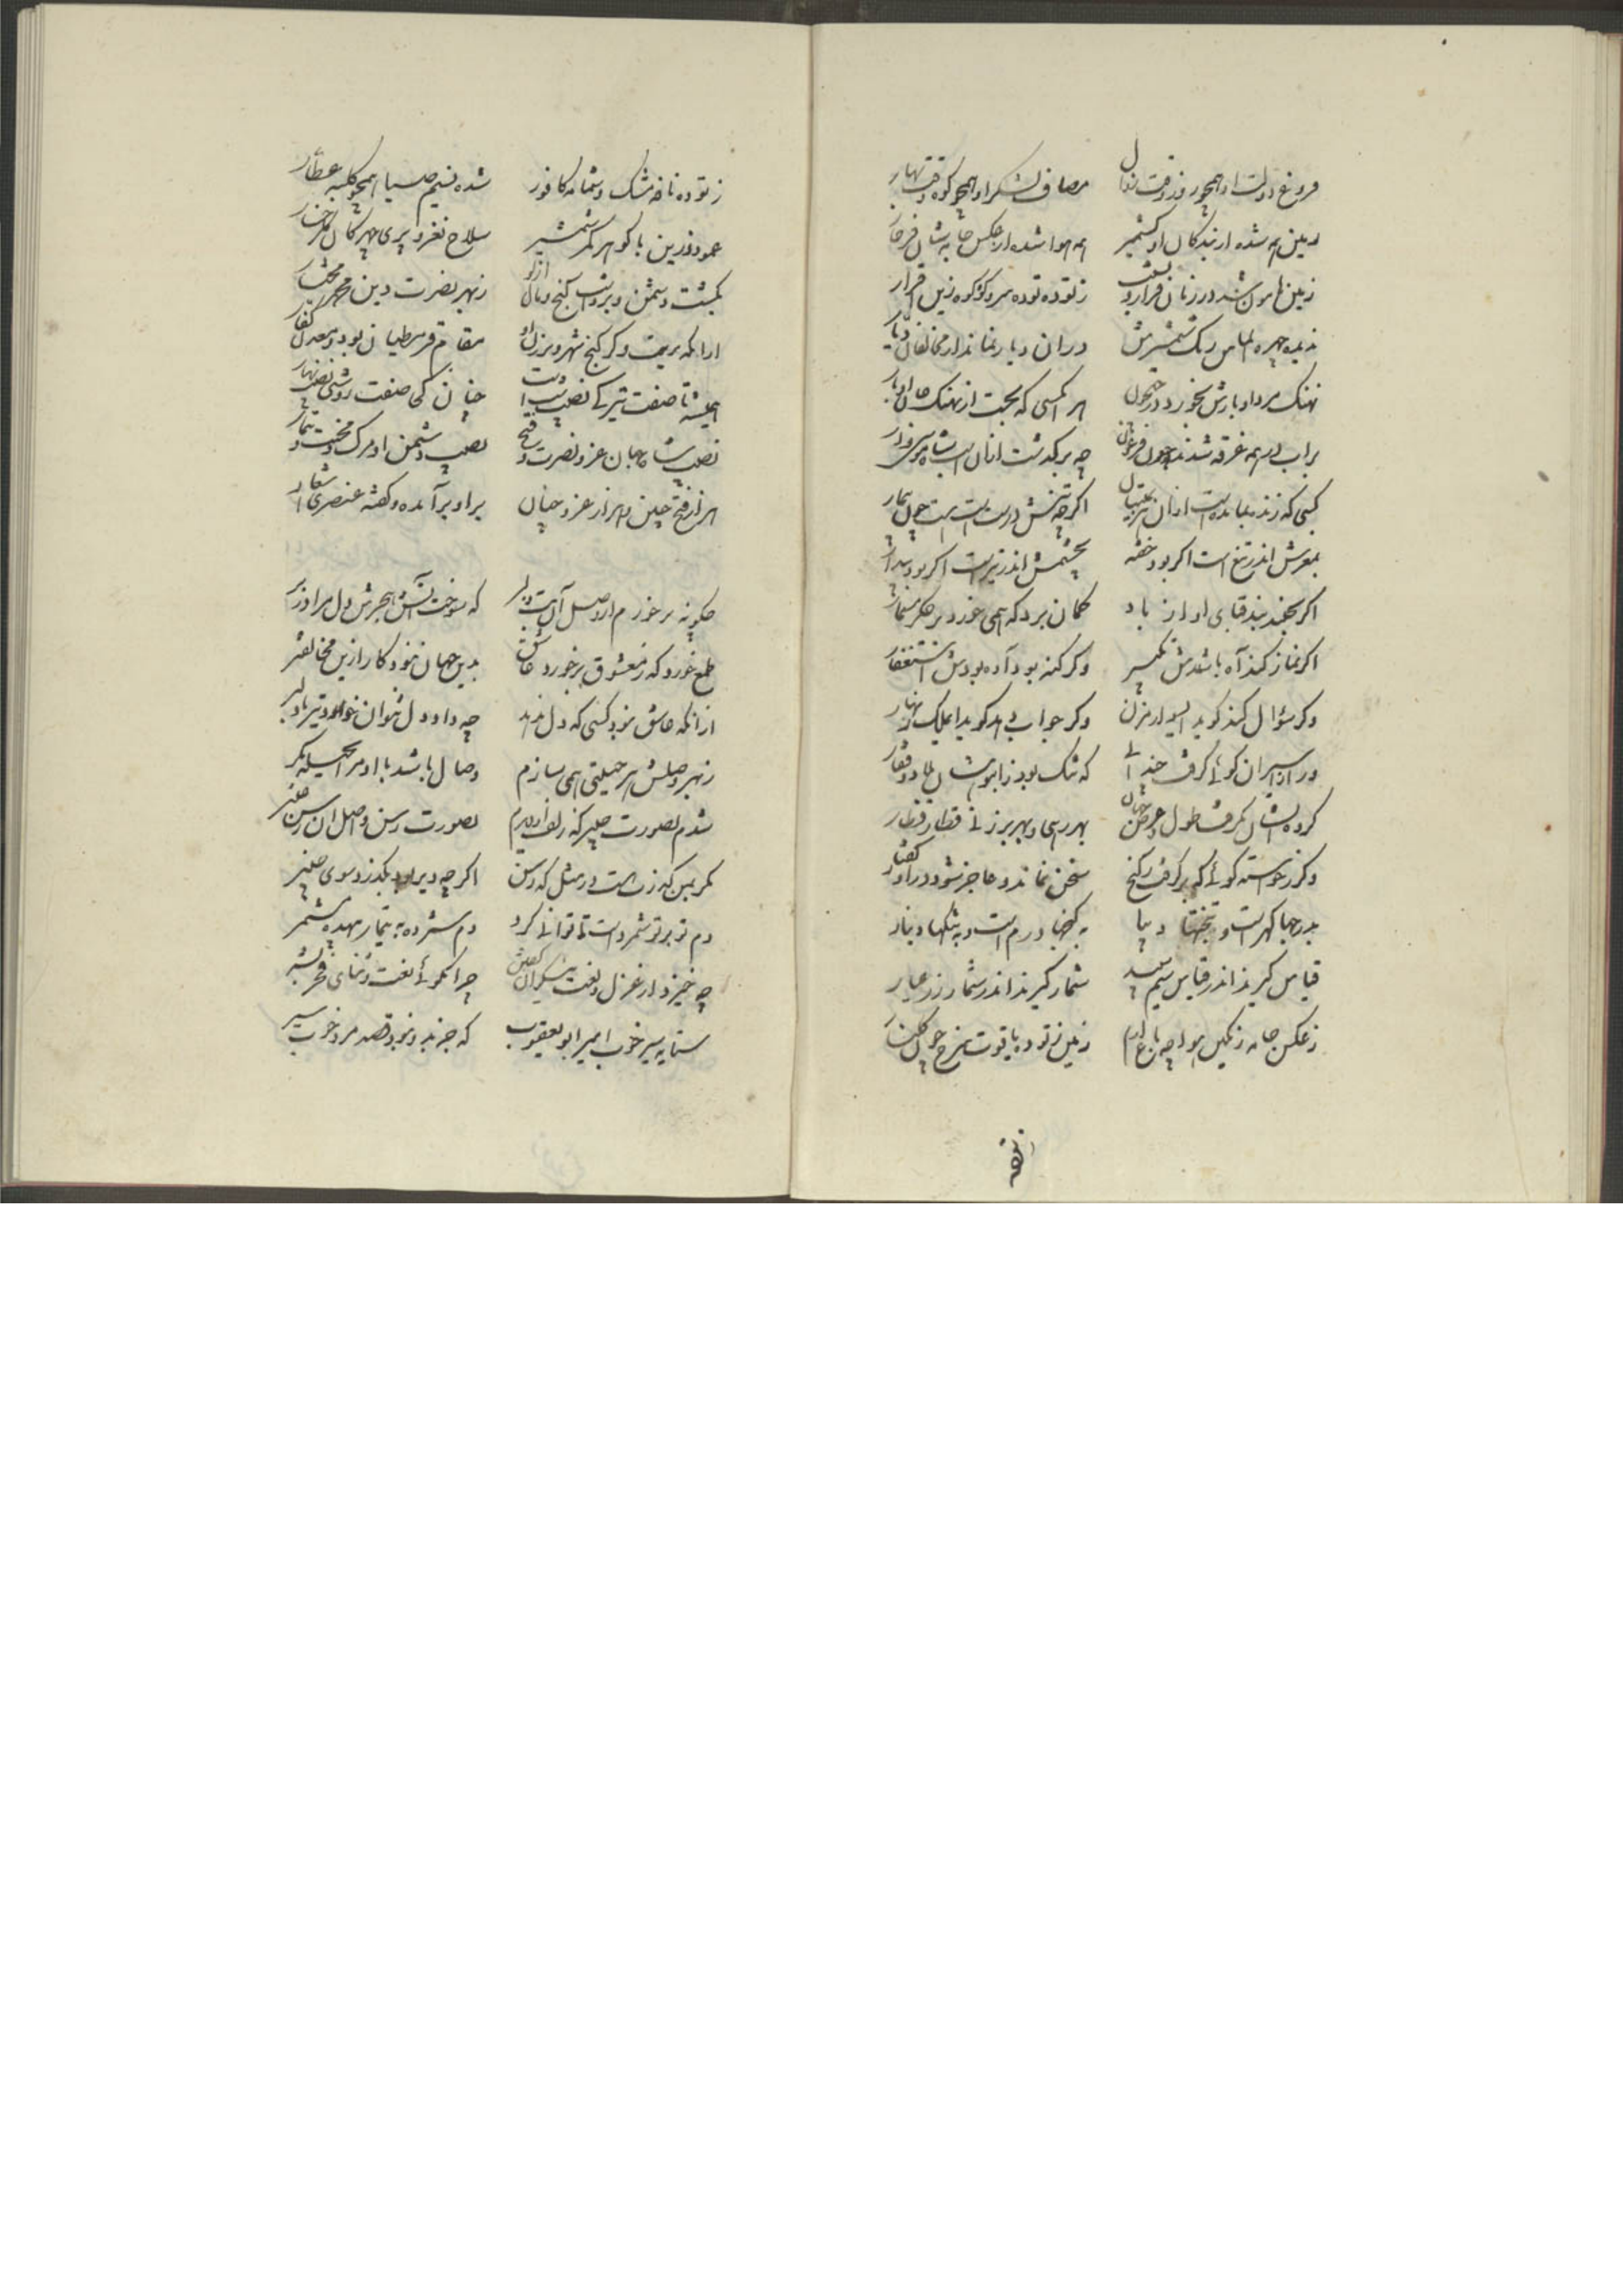 فروغ دولت او همچو روز وقت زوال مصاف لشکر او همچو کوه وقت نهار
زمین همه شده از بندکان او کشمیر همه هوا شده از عکس جامه شان فرخار
زمین هامون شد در زمان قرار و بشب ز توده توده سر و کوه کوه زین افزار
ندیده چهره الماس رنک شمشیرش در ان دیار نماند از مخالفان دیار
نهنک مرد اوبارش بخورد در جیحون هر انکسی که بجست از نهنک جان اوبار
بر اب در همه غرقه شدند چون فرعون چه برکذشت از ان اب شاه موسی وار
کسی که زنده بمانده است از ان هزیمتیان اکر چه تنش درست است هست چون بیمار
بمغزش اندر تیغ است اکر بود خفته بچشمش اندر تیر است اکر بود بیدار
اکر بجنبد بند قبای او از باد کمان برد که همی خورد بر جکر مسمار
اکر نماز کند آه باشدش تکبیر وکر کنه بود آه بودش استغفار
وکر سؤال کند کوید ای سوار مزن وکر جواب دهد کوید ای ملک زنهار
ور از اسیران کوئی کرفت چندانی که تنک بود ز انبوهشان بلاد و قفار
کروه ایشان بکرفت طول و عرض جهان بهر رهی و بهر برزنی قطار قطار
وکر ز خواسته کوئی که برکرفت ز کنج سخن نماند و عاجز شود در او کفتار
بدرجها کهر است و بتختها دیبا به کنجها درم است و به تنکها دینار
قیاس کیرند اندر قیاس سیم سپید شمار کیرند اندر شمار زر عیار
ز عکس جامه رنکین هوا چو باغ ارم زمین ز توده یاقوت سرخ چون کلنار
ز توده
ز توده نافه مشک و شمامه کافور شده نسیم صبا همچو کلبه عطار
عمود زرین با کوهر کمر شمشیر سلاح نغز و پری چهرکان کلرخسار
بکشت دشمن و برداشت کنج و مال ازو ز بهر نصرت دین محمد مختار
ازانکه تربت کرکنج و شهر و برزن او مقام قرمطیان بود و معدن کفار
همیشه تا صفت تیرکی نصیب شب است چنان کی صفت روشنی نصیب نهار
نصیب شاه جهان عز و نصرت و فتح نصیب دشمن او مرک و محنت و تیمار
هزار فتح چنین و هزار عز و چنان بر او برآمده و کفته عنصری اشعار
چکونه برخورم از وصل آن بت دلبر که سوخت آتش هجرش دل مرا در بر
طمع نورد که ز معشوق برخورد عاشق بدین جهان نبود کار ازین مخالفتر
ازانکه عاشق نبود کسی که دل ندهد چه داد دل نتوان خواست نیز باد لبر
ز بهر وصلش هر حیلتی همی سازم وصال باشد با او مرا بحیله مکر
شدم بصورت چنبر که زلف او دیدم بصورت رسن و اصل ان رسن چنبر
مکر ببین که ز نست در مثل که رسن اکر چه دیر بود بکذرد سوی چنبر
دم تو بر تو شمرده است تا توانی کرد دم شمرده به تیمار بیهده مشمر
چه خیزد از غزل و نعت نیکوان کفتن چرا نکوئی نعت و ثنای فخر بشر
ستایه سیر خوب امیر ابو یعقوب که جز بدو نبود قصد مرد خوب سیر